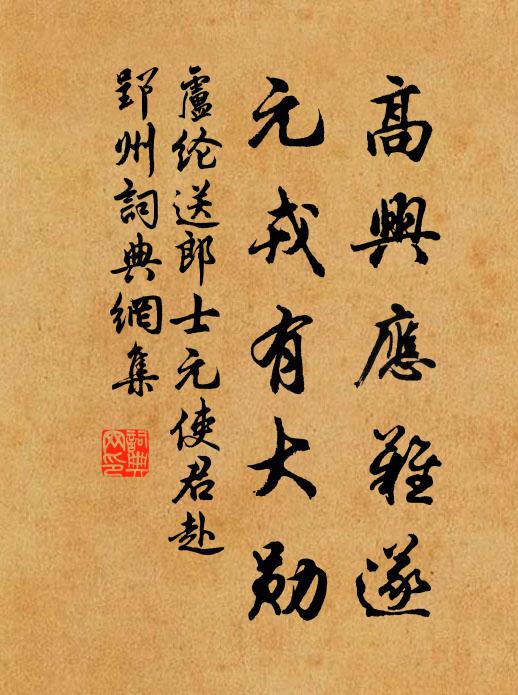 高興應難遂
元戎有大勋
盧纶送郎士元使君赴
郢州詞典網集
詞典
网印